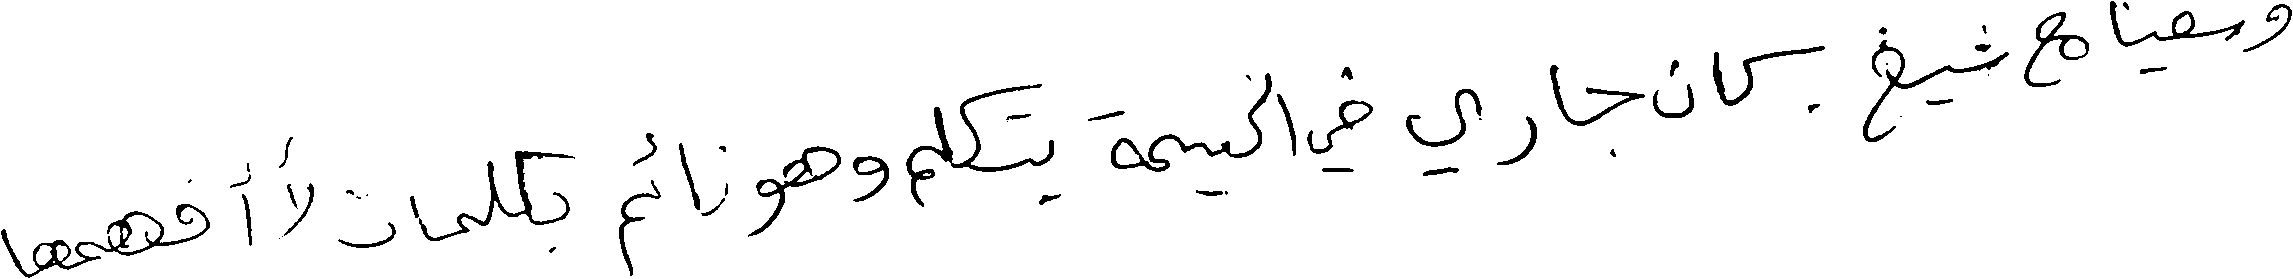 ومعنا مع شيخ . كان جاري في الخيمة يتكلم وهو نائم بكلمات لا أفهمها